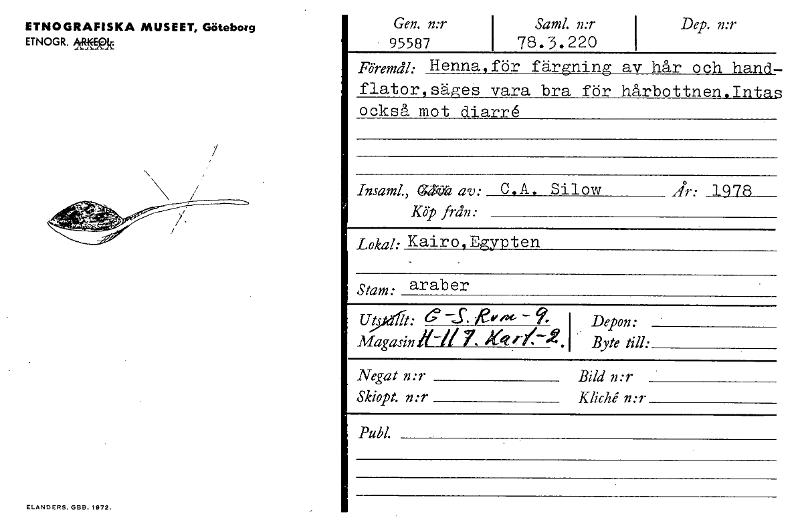 ETNOGRAFISKA MUSEET, Göteborg
ETNOGR. ARKEOL.
Gen. n:r Saml. n:r Dep. n:r
95587 78.3.220
Föremål: Henna,för färgning av hår och hand-
flator,säges vara bra för hårbottnen.Intas
också mot diarré
Insaml., Gåva av: C.A. Silow År: 1978
Köp från:
Lokal: Kairo,Egypten
Stam: araber
Utställt: G-S. Rum-9. Depon:
Magasin H-117. Kart.-2. Byte till:
Negat n:r Bild n:r
Skiopt. n:r Kliché n:r
Publ.
ELANDERS. GBB. 1972.